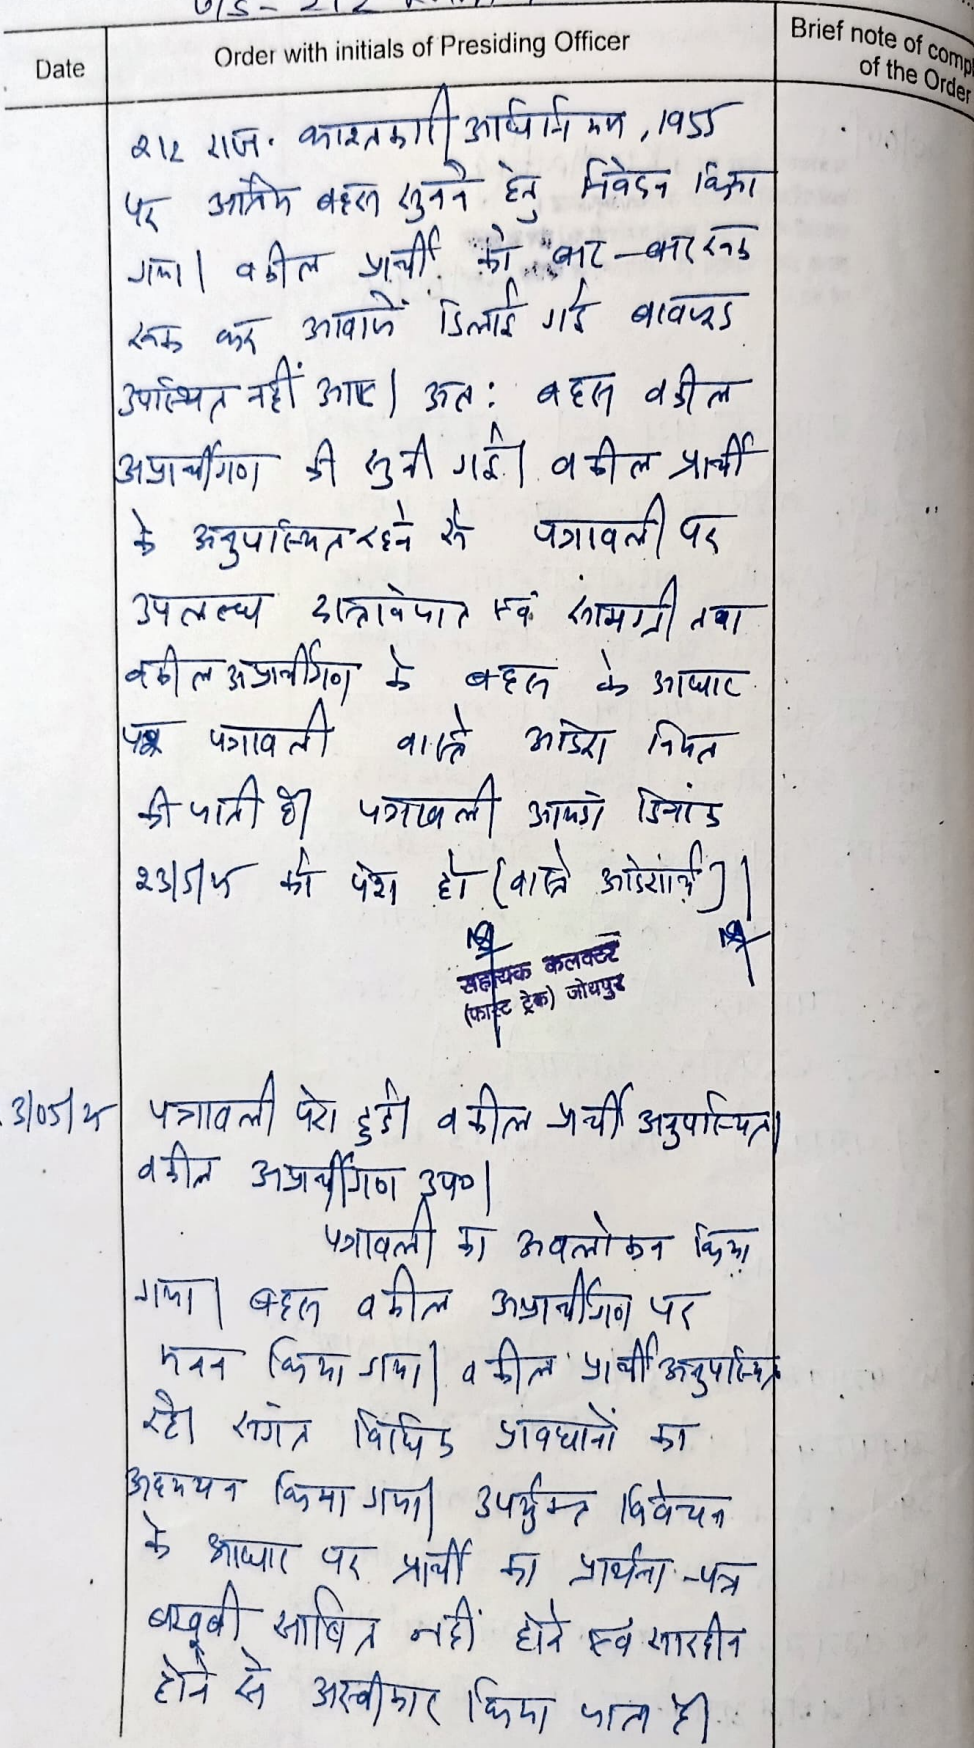 Date
Order with initials of Presiding Officer
Brief note of comp
of the Order
212 राज. काश्तकारी अधिनियम, 1955
पर अंतिम बहस सुनने हेतु निवेदन किया
गया। वकील प्रार्थी को बार-बार रूक
रूक कर आवाजें दिलाई गई बावजूद
उपस्थित नहीं आए। अत: बहस वकील
अप्रार्थीगण की सुनी गई। वकील प्रार्थी
के अनुपस्थित रहने से पत्रावली पर
उपलब्ध दस्तावेजात एवं सामग्री तथा
वकील अप्रार्थीगण के बहस के आधार
पर पत्रावली वास्ते आदेश नियत
की जाती है। पत्रावली आगे दिनांक
23/5/25 को पेश हो (वास्ते आदेशार्थ)।
सहायक कलक्टर
(फास्ट ट्रेक) जोधपुर
3/05/25 पत्रावली पेश हुई। वकील प्रार्थी अनुपस्थित।
वकील अप्रार्थीगण उप०।
पत्रावली का अवलोकन किया
गया। बहस वकील अप्रार्थीगण पर
मनन किया गया। वकील प्रार्थी अनुपस्थित
रहे। संगत विधिक प्रावधानों का
अध्ययन किया गया। उपर्युक्त विवेचन
के आधार पर प्रार्थी का प्रार्थना-पत्र
बखूबी साबित नहीं होने एवं सारहीन
होने से अस्वीकार किया जाता है।